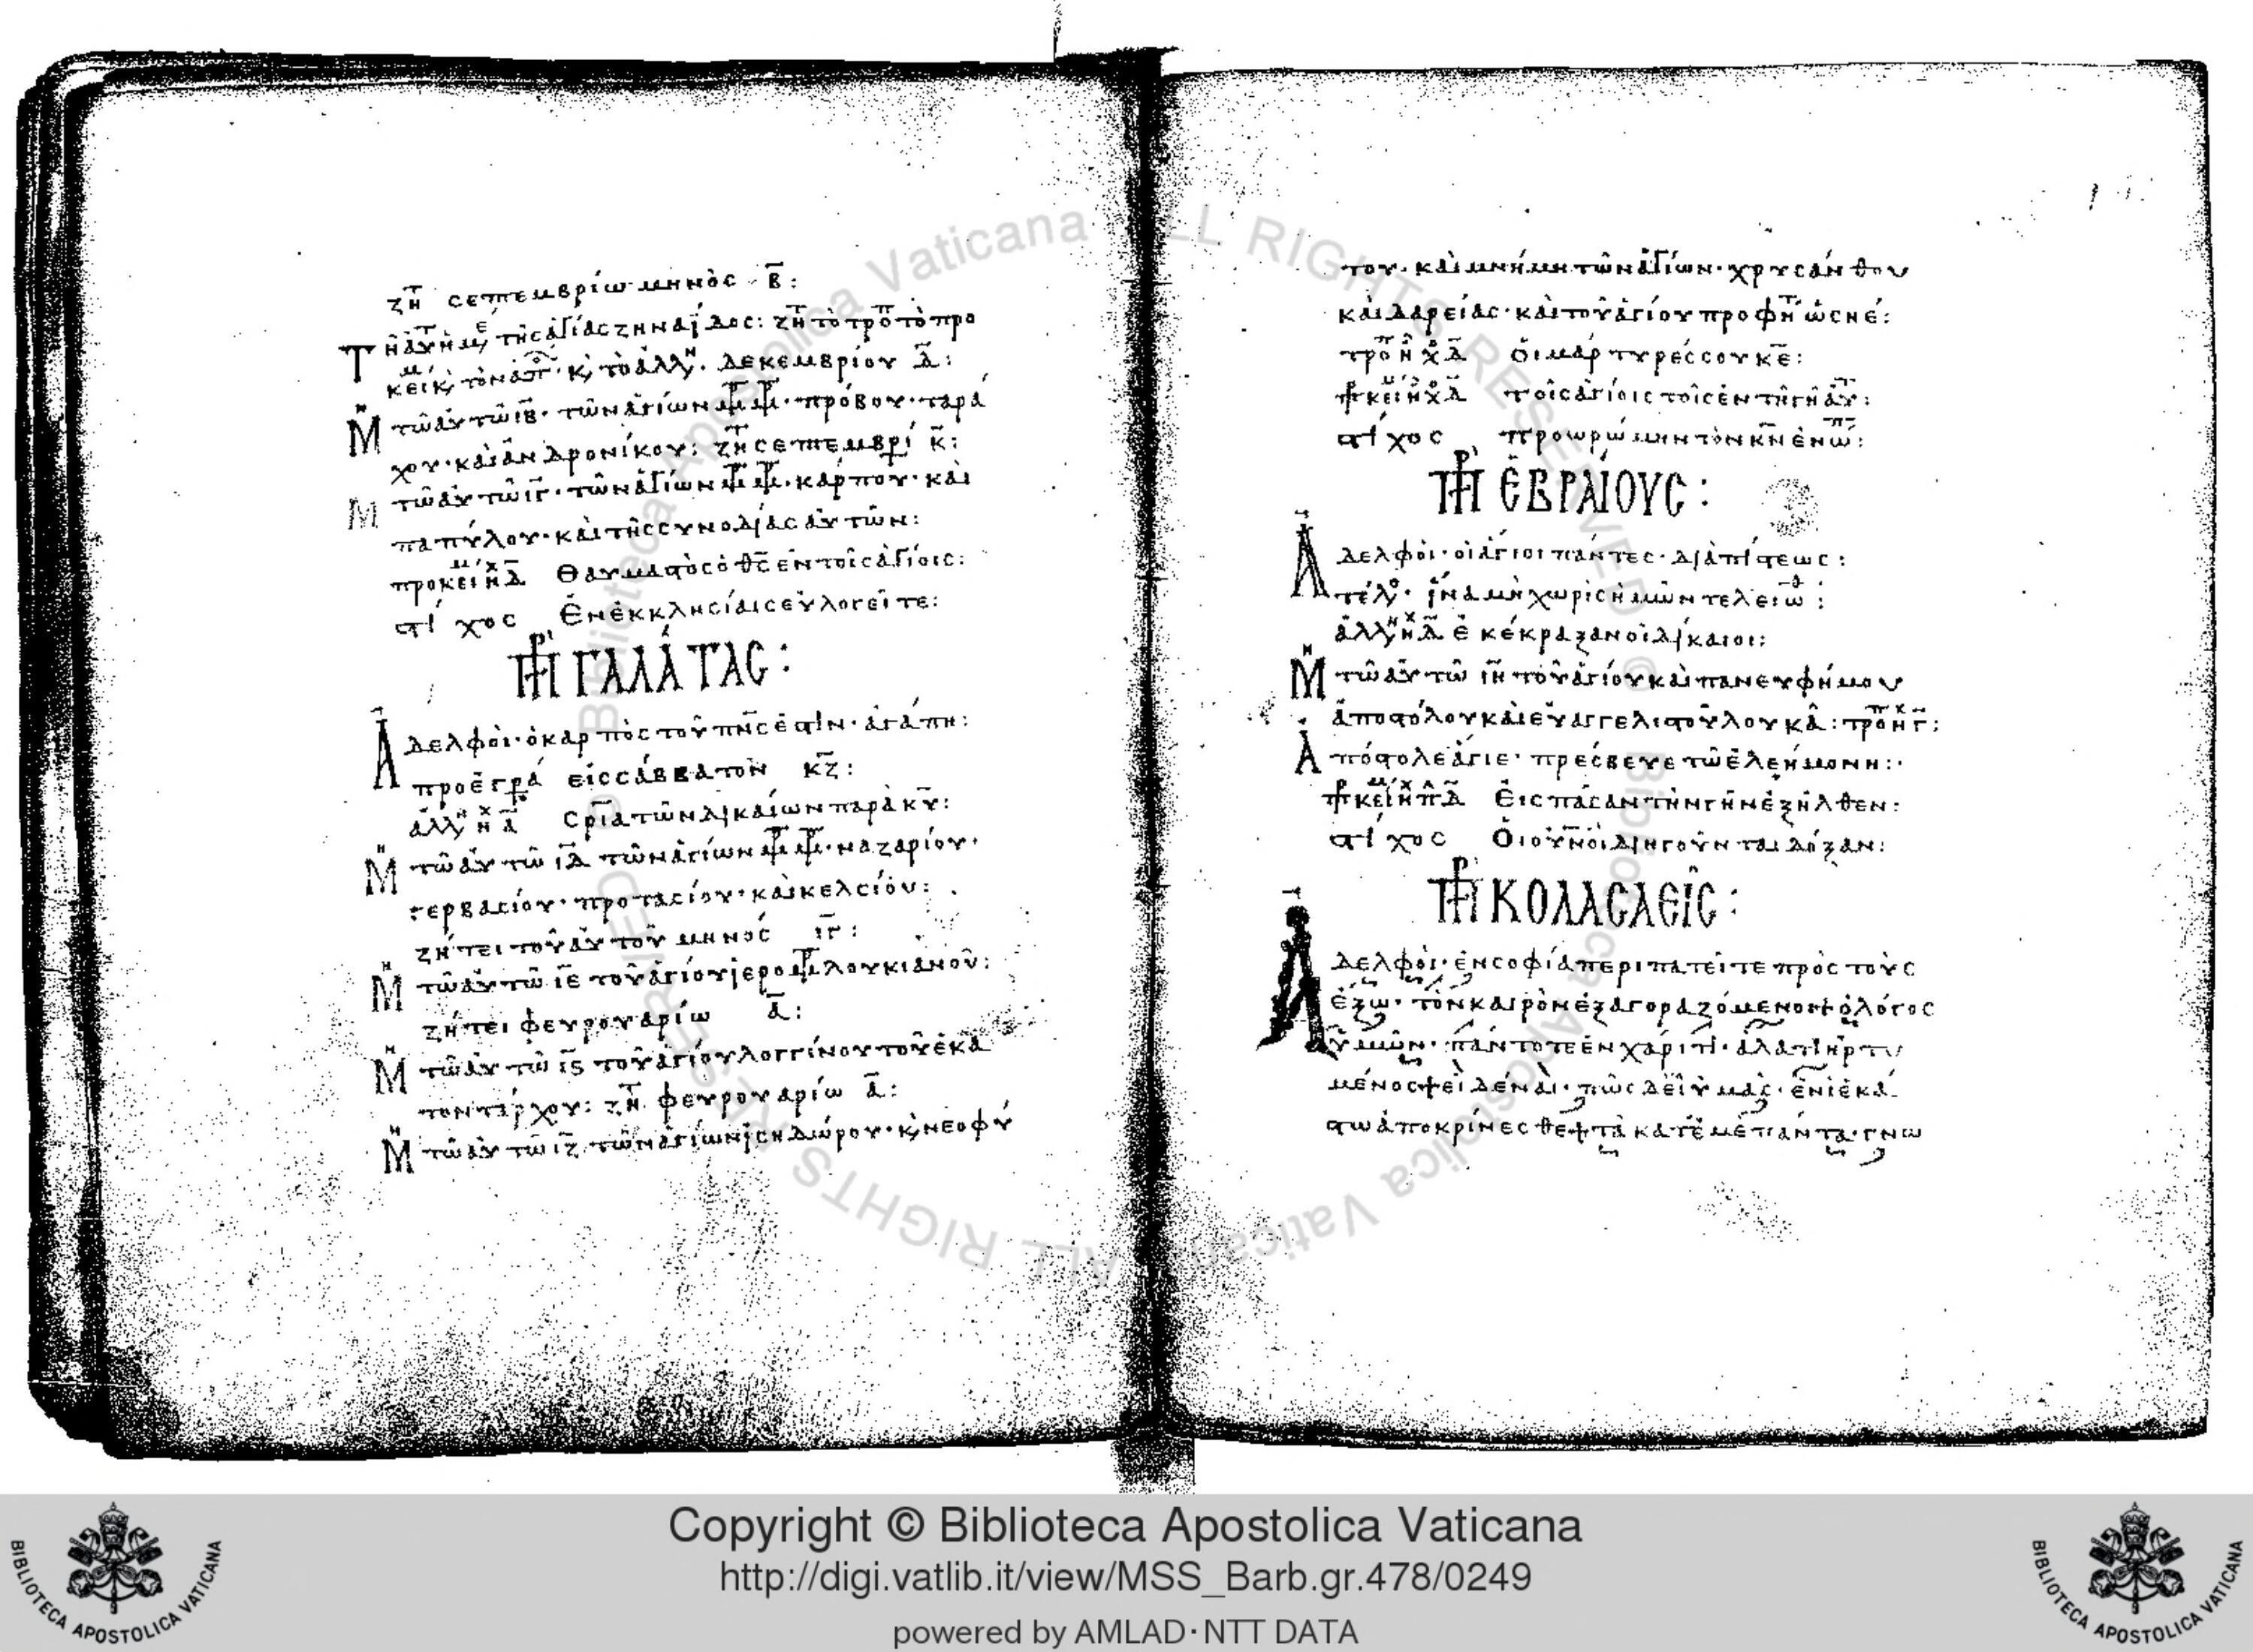 ζη σεπτεμβρίω μηνὸς β:
Τῆ αὐτ ἡμ, τῆς ἁγίας ζηναΐδος: ζητ τὸ τροπ τὸ προ
κειμ κ, τὸν ἀποστ κ, τὸ ἀλλη. δεκεμβρίου δ:
Μη τῶ αὐτῶ ιβ. τῶν ἁγίων μρ μρ. πρόβου. ταρά
χου. καὶ ἀνδρονίκου: ζητ σεπτεμβρί κ:
Μ τῶ αὐτῶ ιγ. τῶν ἁγίων μρ μρ. κάρπου. καὶ
παπύλου. καὶ τῆς συνοδίας αὐτῶν:
προκείμ ηχ δ Θαυμαστὸς ὁ θς ἐν τοῖς ἁγίοις:
στίχος Ἐν ἐκκλησίαις εὐλογεῖτε:
Πρ ΓΑΛΆΤΑΣ:
Ἀδελφοὶ. ὁ καρπὸς τοῦ πνς ἐστὶν. ἀγάπη:
προεγρά εἰς σάββατον κζ:
ἀλλη ηχ δ
Μη τῶ αὐτῶ ιδ τῶν ἁγίων μρ μρ. ναζαρίου.
γερβασίου. προτασίου. καὶ κελσίου:
ζήτει τοῦ αὐτοῦ μηνός ιγ:
Μη τῶ αὐτῶ ιε τοῦ ἁγίου ἱερομρ λουκιανοῦ:
ζήτει φευρουαρίω α:
Μη τῶ αὐτῶ ις τοῦ ἁγίου λογγίνου τοῦ ἑκα
τοντάρχου: ζητ φευρουαρίω α:
Μη τῶ αὐτῶ ιζ τῶν ἁγίων ἰσηδώρου. κ, νεοφύ
του. καὶ μνήμη τῶν ἁγίων. χρυσάνθου
καὶ δαρείας. καὶ τοῦ ἁγίου προφητ ὡσηέ:
τροπ ηχο δ Οἱ μάρτυρές σου κε:
πρκείμ ηχο δ τοῖς ἁγίοις τοῖς ἐν τῆ γῆ αὐτ:
στίχος Προωρώμην τὸν κν ἐνωπ:
Πρ ἙΒΡΑΊΟΥΣ:
Ἀδελφοὶ. οἱ ἅγιοι πάντες. διὰ πίστεως:
τέλο. ἵνα μὴ χωρὶς ἡμῶν τελειωθ:
ἀλλη ηχ δ ἐκέκραξαν οἱ δίκαιοι:
Μη τῶ αὐτῶ ιη τοῦ ἁγίου καὶ πανευφήμου
ἀποστόλου καὶ εὐαγγελιστοῦ λουκᾶ: τροπ ηχ γ:
Ἀπόστολε ἅγιε. πρέσβευε τῶ ἐλεήμονη:
πρκείμ ηχ πλ δ Εἰς πᾶσαν τὴν γῆν ἐξῆλθεν:
στίχος Οἱ οὐνοὶ διηγοῦνται δόξαν:
Πρ ΚΟΛΑΣΑΕῖΣ:
Ἀδελφοὶ. ἐν σοφία περιπατεῖτε πρὸς τοὺς
ἔξω. τὸν καιρὸν ἐξαγοραζόμενοι+ ὁ λόγος
ὑμῶν. πάντοτε ἐν χάριτι. ἅλατι ἠρτυ
μένος+ εἰδέναι. πῶς δεῖ ὑμᾶς. ἑνὶ ἑκά
στω ἀποκρίνεσθε+ τὰ κατ' ἐμὲ πάντα. γνω
Copyright © Biblioteca Apostolica Vaticana
http://digi.vatlib.it/view/MSS_Barb.gr.478/0249
powered by AMLAD·NTT DATA
BIBLIOTECA APOSTOLICA VATICANA
BIBLIOTECA APOSTOLICA VATICANA